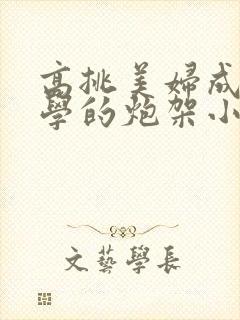 高挑美婦成
學的炮架小
文藝學長